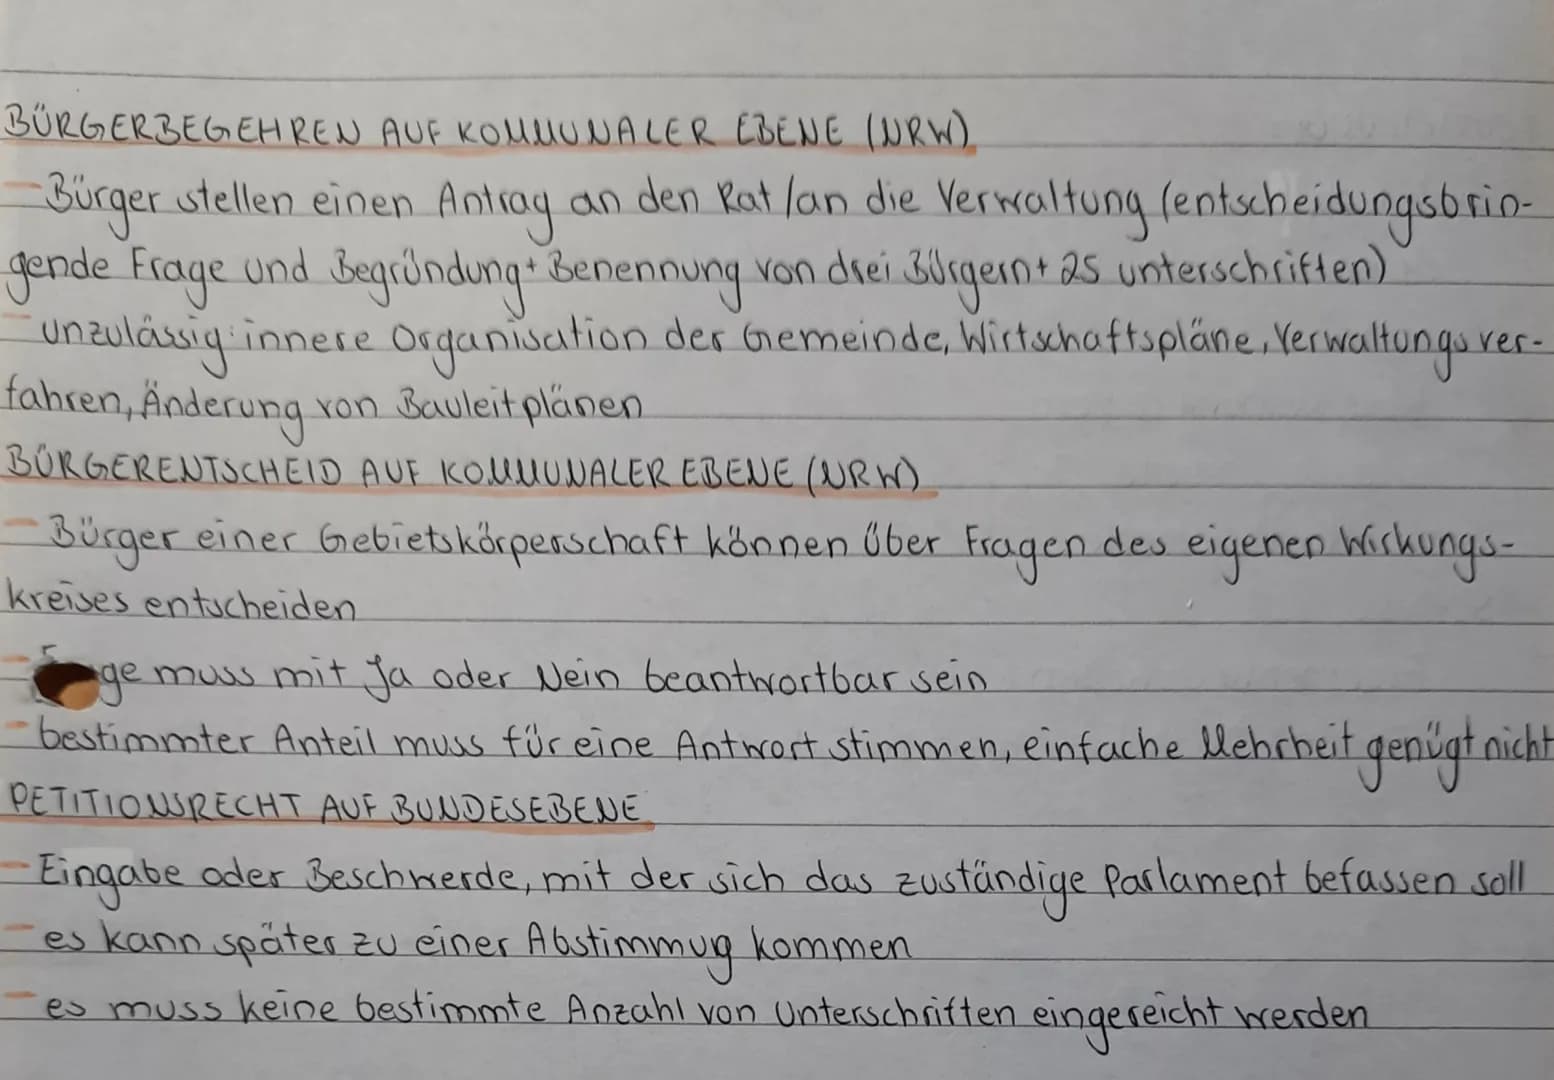 BÜRGERBEGEHREN AUF KOMMUNALER EBENE (NRW)
- Bürger stellen einen Antrag an den Rat/an die Verwaltung (entscheidungsbrin-
gende Frage und Begründung + Benennung von drei Bürgern + 25 unterschriften)
- unzulässig: innere Organisation der Gemeinde, Wirtschaftspläne, Verwaltungsver-
fahren, Änderung von Bauleitplänen
BÜRGERENTSCHEID AUF KOMMUNALER EBENE (NRW)
- Bürger einer Gebietskörperschaft können über Fragen des eigenen Wirkungs-
kreises entscheiden
- ge muss mit Ja oder Nein beantwortbar sein
- bestimmter Anteil muss für eine Antwort stimmen, einfache Mehrheit genügt nicht
PETITIONSRECHT AUF BUNDESEBENE
- Eingabe oder Beschwerde, mit der sich das zuständige Parlament befassen soll
- es kann später zu einer Abstimmug kommen
- es muss keine bestimmte Anzahl von Unterschriften eingereicht werden